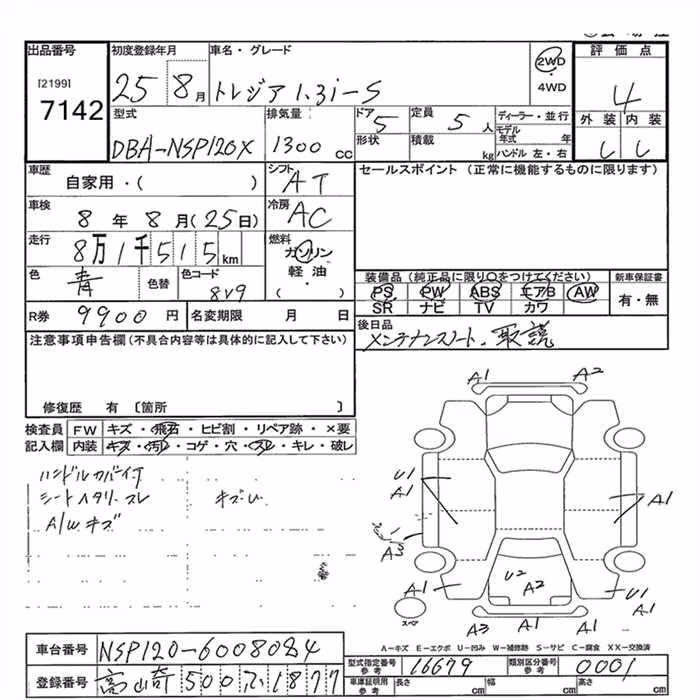 出品番号
[2199]
7142
初度登録年月
25 8月
車名・グレード
トレジア 1.3i-S
2WD
・
4WD
評価点
4
外装 内装
型式
DBA-NSP120X
排気量
1300 cc
ドア 5
形状
定員 5 人
積載 kg
ディーラー・並行
モデル年式 年
ハンドル 左・右
車歴
自家用・( )
シフト AT
セールスポイント (正常に機能するものに限ります)
車検
8年8月(25日)
冷房 AC
走行
8万1千515km
燃料
ガソリン
軽油
( )
色 青
色替
色コード 8V9
装備品 (純正品に限り○をつけてください)
PS PW ABS エアB AW
SR ナビ TV カワ
新車保証書
有・無
R券 9900 円
名変期限 月 日
後日品
メンテナンスノート・取説
注意事項申告欄(不具合内容等は具体的に記入して下さい)
修復歴 有 〔箇所 〕
検査員 FW キズ・飛石・ヒビ割・リペア跡・×要
記入欄 内装 キズ・汚レ・コゲ・穴・スレ・キレ・破レ
ハンドルカバー付
シートヘタリ・スレ キズU
A/Wキズ
A1 A2
U1
A1
A1
A3
A1
U2
A2
U1
A1
スペア
A3 A1 A1
A-キズ E-エクボ U-凹み W-補修跡 S-サビ C-腐食 XX-交換済
車台番号 NSP120-6008084
登録番号 500 ふ1877
型式指定番号
参考
16679
類別区分番号
参考
0001
車庫証明用
参考
長さ cm 幅 cm 高さ cm